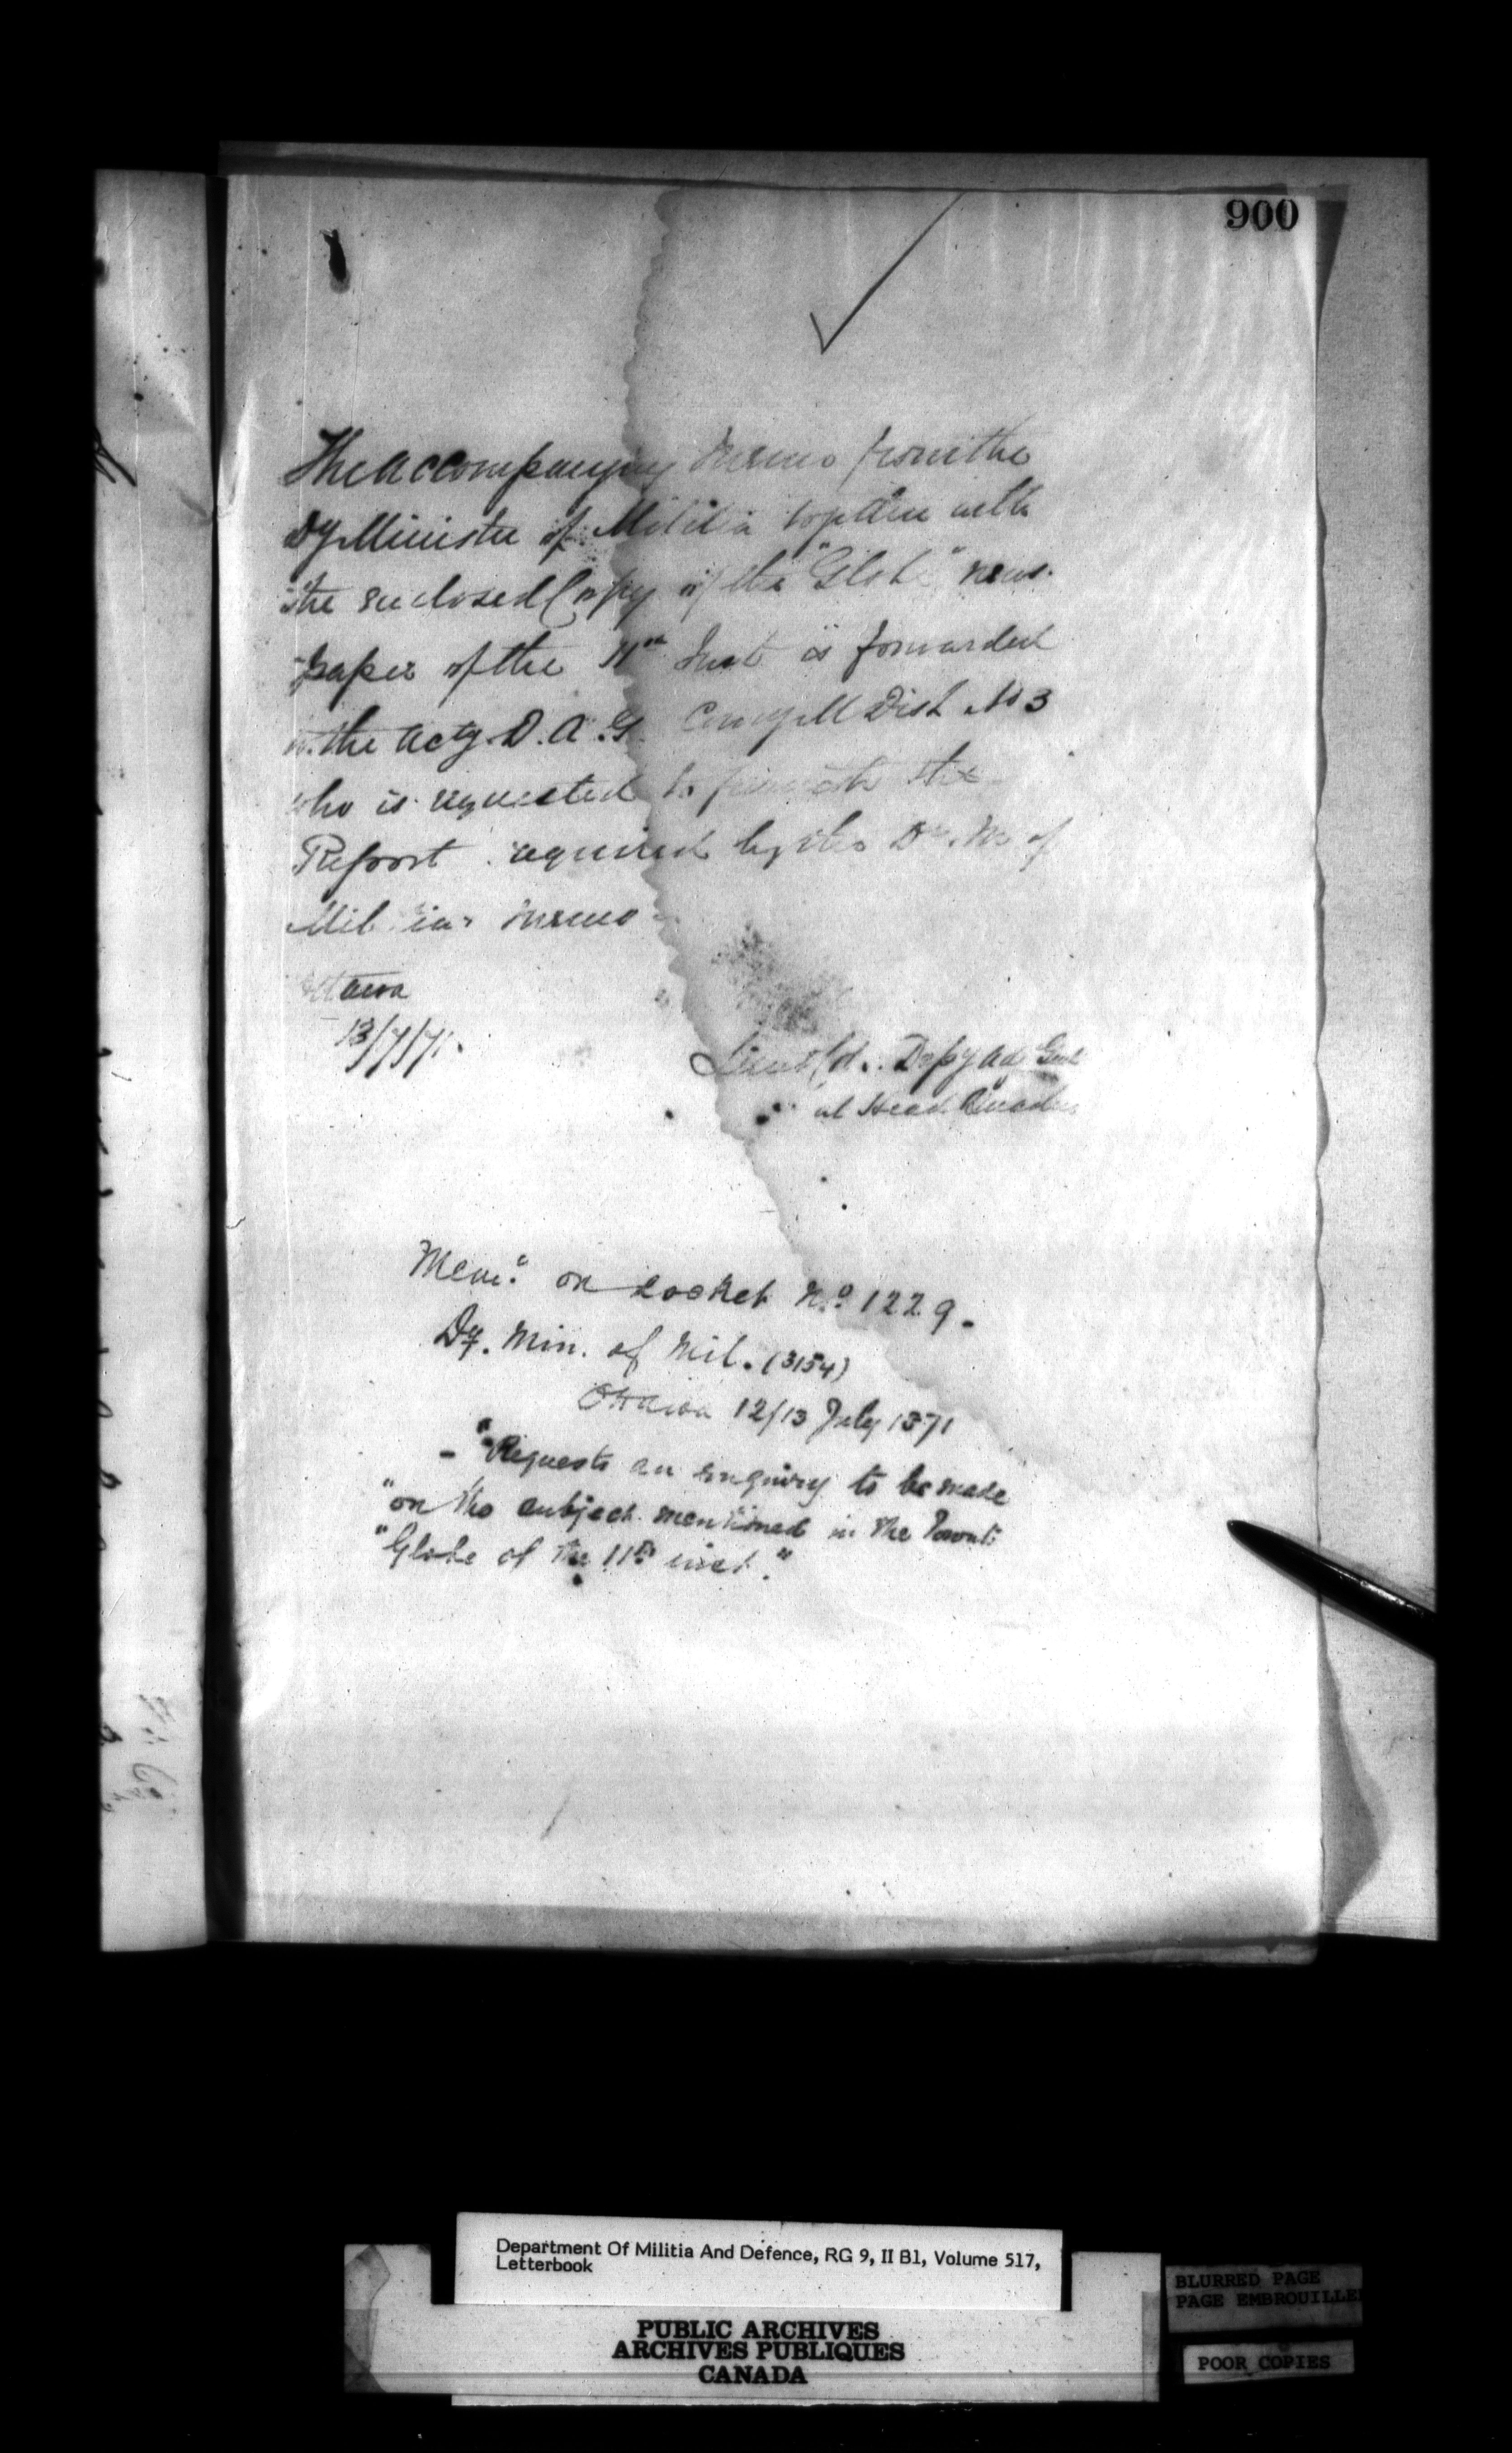 900
The accompanying Memo from the
Dy Minister of Militia together with
the enclosed Copy of the "Globe" news-
paper of the 11th Inst is forwarded
to the Actg D.A.G. Comg M Dist No 3
who is requested to furnish the
Report required by the Dy. M. of
Militia's memo
Ottawa
13/7/71.
Lieut Col. Depy Adj Genl
at Head Quarters
Memo. on Docket No. 1229.
Dy. Min. of Mil. (3154)
Ottawa 12/13 July 1871
- "Requests an enquiry to be made
"on the subject mentioned in the Toronto
"Globe of the 11th inst."
Department Of Militia And Defence, RG 9, II B1, Volume 517,
Letterbook
PUBLIC ARCHIVES
ARCHIVES PUBLIQUES
CANADA
BLURRED PAGE
PAGE EMBROUILLEE
POOR COPIES